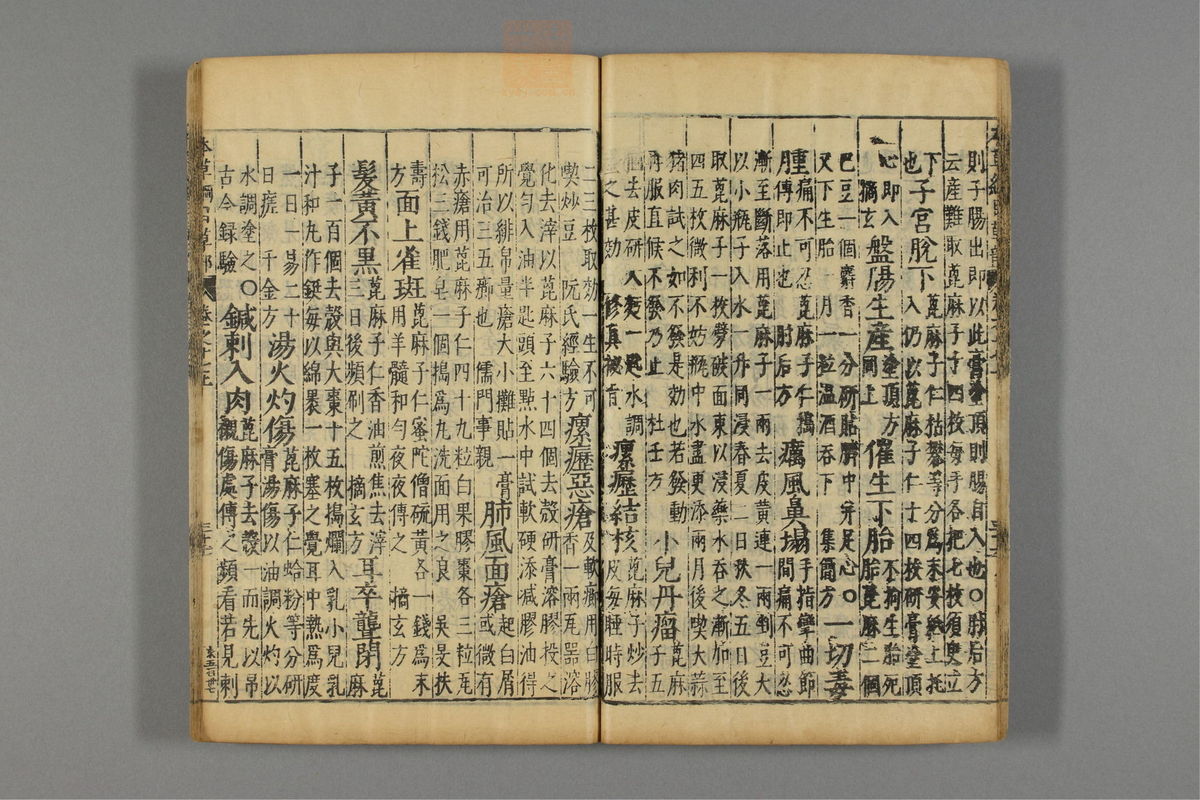 則子腸出即以此膏塗頂則腸自入也○肘后方
云産難取蓖麻子十四枚每手各把七枚須臾立
下子宮脫下蓖麻子仁枯礬等分爲末安紙上托
也入仍以蓖麻子仁十四枚研膏塗頂
心即入摘玄盤腸生産塗頂方同上催生下胎不拘生胎死胎蓖麻二個
巴豆一個麝香一分研貼臍中并足心○
又下生胎一月一粒温酒吞下集簡方一切毒
腫痛不可忍蓖麻子仁搗傅即止也肘后方癘風鼻塌手指攣曲節間痛不可忍
漸至斷落用蓖麻子一兩去皮黄連一兩剉豆大
以小瓶子入水一升同浸春夏二日秋冬五日後
取蓖麻子一枚劈破面東以浸藥水吞之漸加至
四五枚微利不妨瓶中水盡更添兩月後喫大蒜
猪肉試之如不發是効也若發動
再服直候不發乃止杜壬方小兒丹瘤蓖麻子五
個去皮研入麪一匙水調
塗之甚効修真祕旨瘰癧結核蓖麻子炒去皮每睡時服
二三枚取効一生不可
喫炒豆阮氏經驗方瘰癧惡瘡及軟癤用白膠香一兩瓦器溶
化去滓以蓖麻子六十四個去殼研膏溶膠投之
覺勻入油半匙頭至點水中試軟硬添减膠油得
所以緋帛量瘡大小攤貼一膏
可治三五癤也儒門事親肺風面瘡起白屑或微有
赤瘡用蓖麻子仁四十九粒白果膠棗各三粒瓦
松三錢肥皂一個搗爲丸洗面用之良吳旻扶
壽方面上雀斑蓖麻子仁蜜陀僧硫黄各一錢爲末
用羊髓和勻夜夜傅之摘玄方
髮黄不黑蓖麻子仁香油煎焦去滓
三日後頻刷之摘玄方耳卒聾閉蓖麻
子一百個去殼與大棗十五枚搗爛入乳小兒乳
汁和丸作鋌每以綿裹一枚塞之覺耳中熱爲度
一日一易二十
日瘥千金方湯火灼傷蓖麻子仁蛤粉等分研膏湯傷以油調火灼以
水調塗之○
古今録驗鍼刺入肉蓖麻子去殼一而先以帛襯傷處傅之頻看若見刺